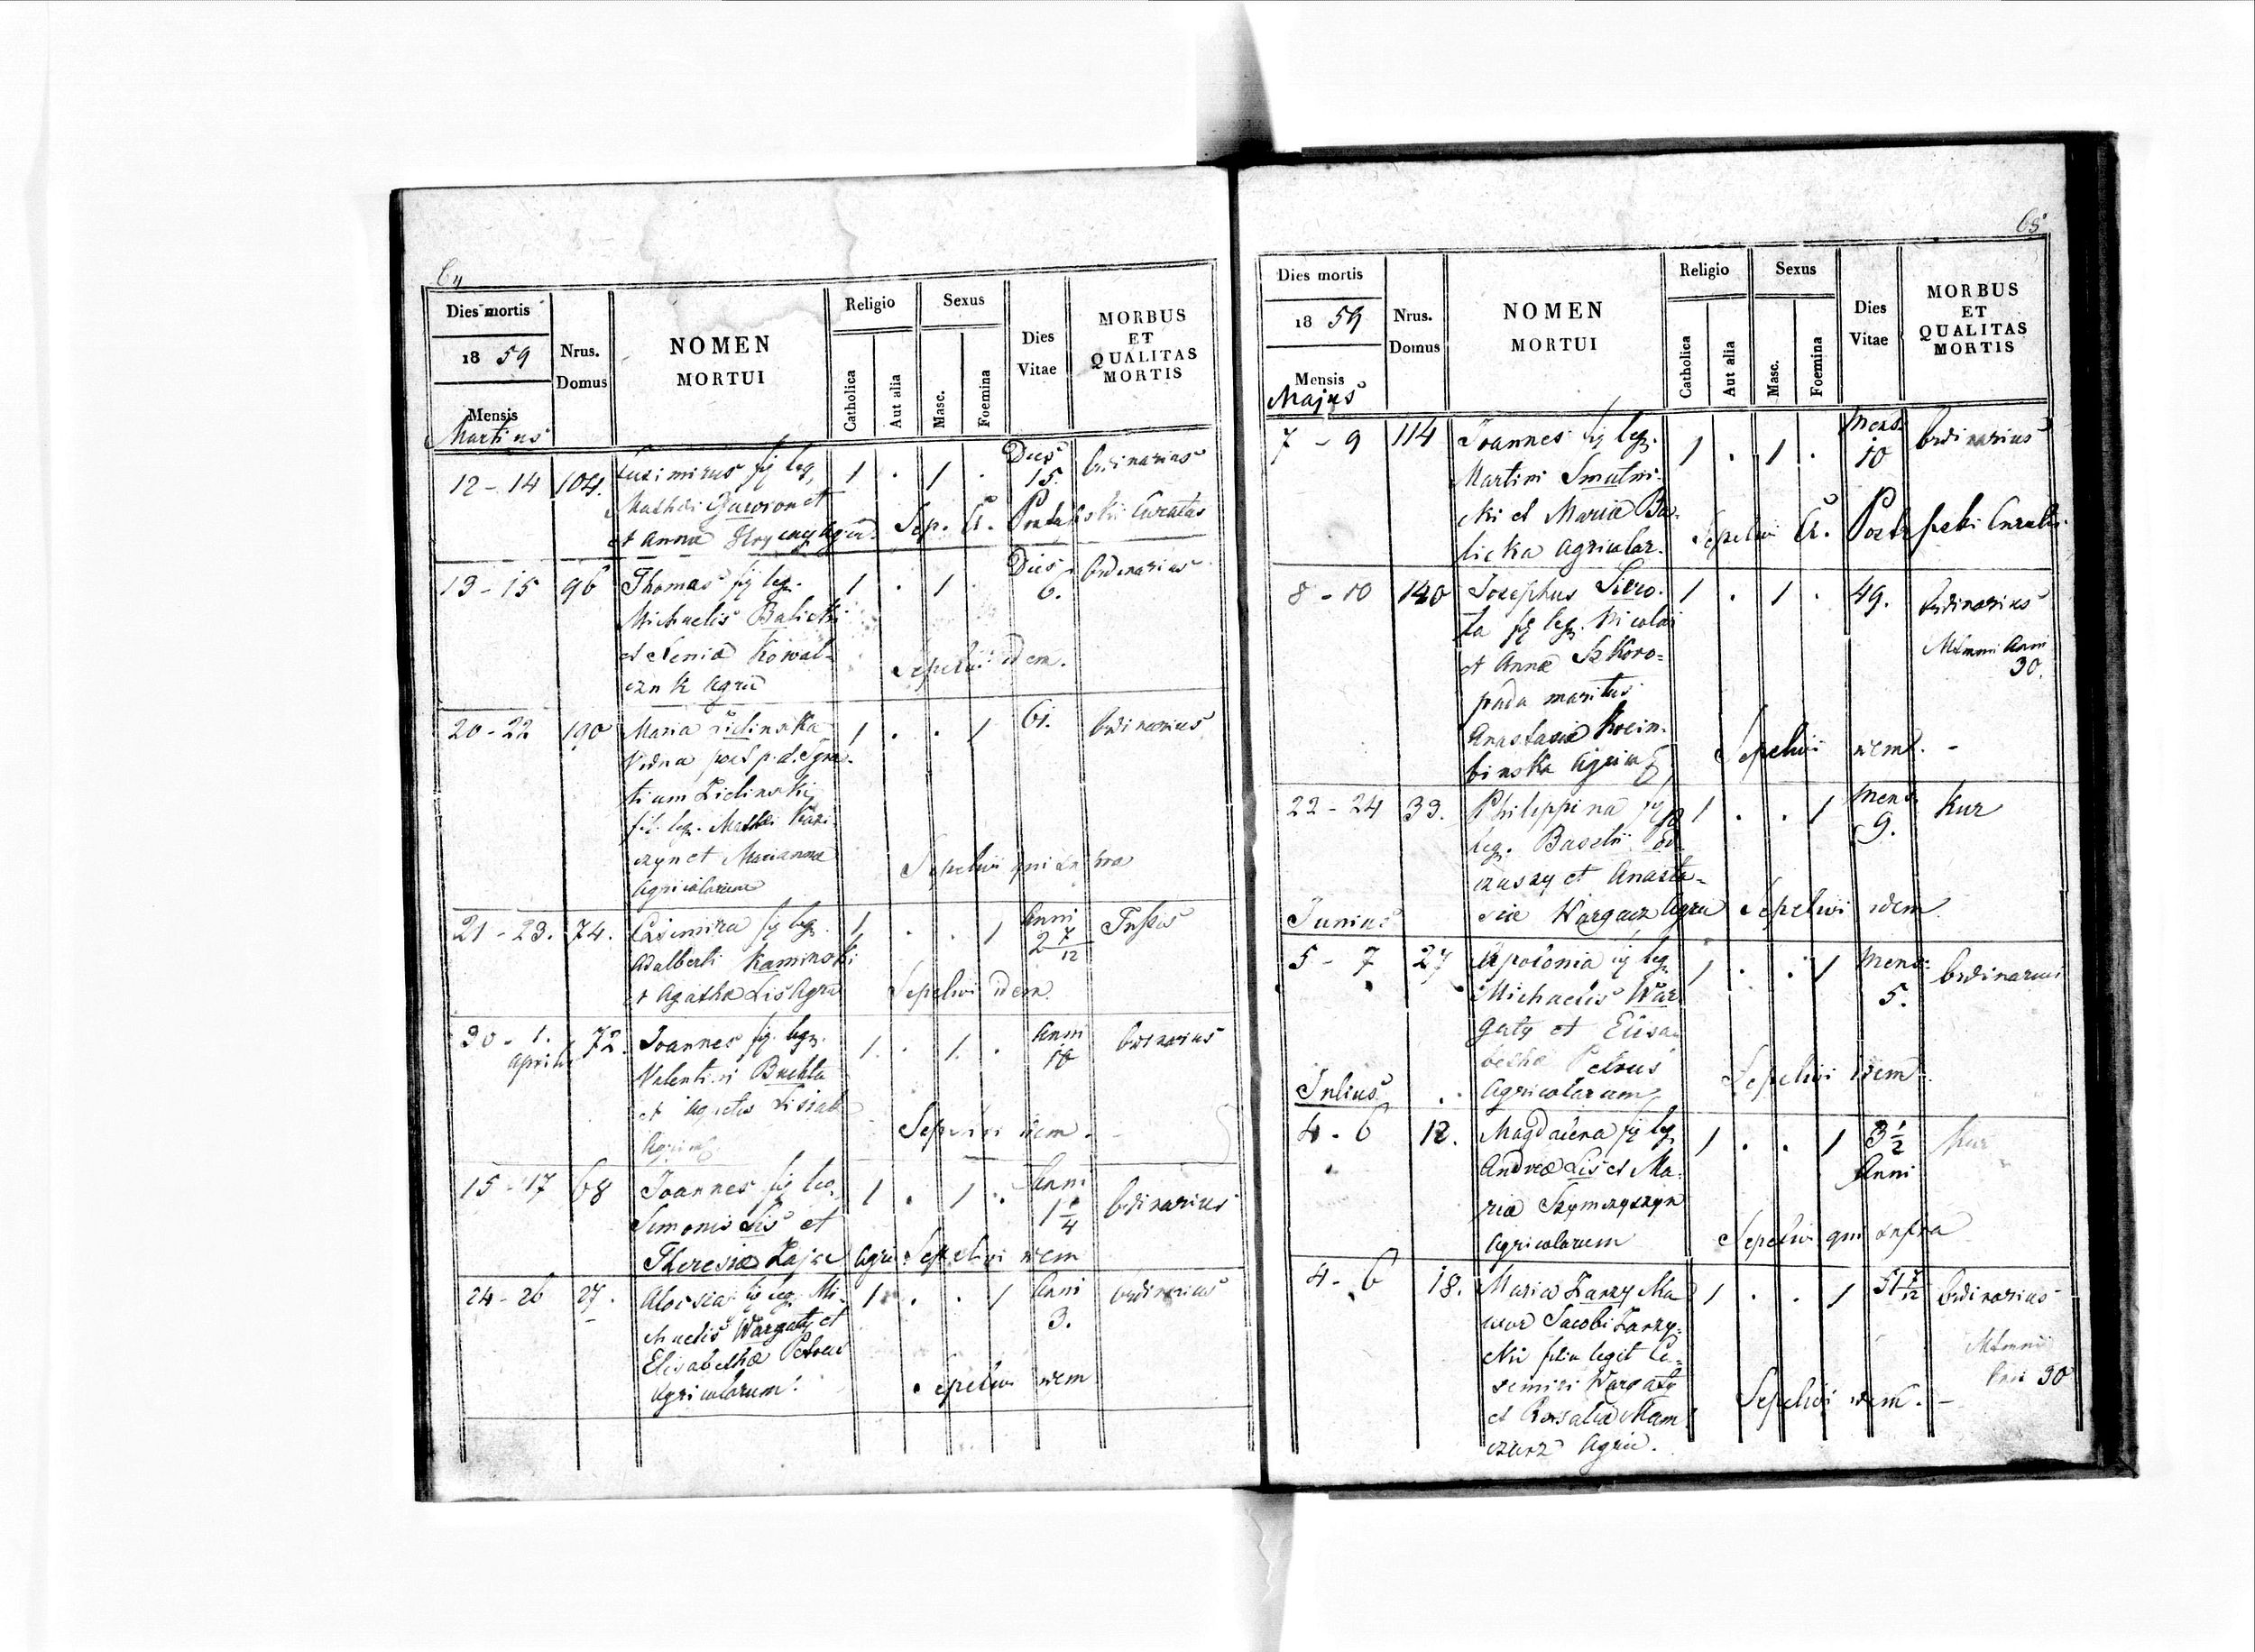 64
Dies mortis
1859
Mensis
Martius
Nrus. Domus
NOMEN MORTUI
Religio
Catholica
Aut alia
Sexus
Masc.
Foemina
Dies Vitae
MORBUS ET QUALITAS MORTIS
12 - 14 104. Casimirus fil leg. 1 . 1 . Dies 15. Ordinarius
Mathei Gawron et
et Anna Agric. Sep. A. Curatus
13 - 15 96 Thomas fil leg. 1 . 1 . Dies 6. Ordinarius
Michaelis Balicki
et Xenia Kowal-
czuk Agric Sepelivi idem.
20 - 22 190 Maria Zielinska 1 . . 1 61. Ordinarius
Vidua post p. d. Igna-
tium Zielinski
fil. leg. Mathei
et Marianna Sepelivi qui
Agricolarum
21 - 23. 74. Casimira fil leg. 1 . . 1 Anni 2 7/12 Tussis
Adalberti Kaminski
et Agatha Lis Agric Sepelivi idem.
30 - 1. Aprilis 72. Joannes fil. leg. 1. . 1. . Anni 10 Ordinarius
Valentini Buchta
et Agnetis
Agric Sepelivi idem.
15 - 17 68 Joannes fil leg. 1 . 1 . Anni 1 1/4 Ordinarius
Simonis Lis et
Theresia Zając Agric Sepelivi idem
24 - 26 27. Aloisia fil leg. Mi- 1 . . 1 Anni 3. Ordinarius
chaelis Wargaty et
Elisabetha Petrus
Agricolarum. Sepelivi idem
65
Dies mortis
1859
Mensis
Majus
Nrus. Domus
NOMEN MORTUI
Religio
Catholica
Aut alia
Sexus
Masc.
Foemina
Dies Vitae
MORBUS ET QUALITAS MORTIS
7 - 9 114 Joannes fil leg. 1 . 1 . Mens. 10 Ordinarius
Martini Smutni-
cki et Maria Ba-
licka Agricolar. Sepelivi A.
8 - 10 140 Josephus Siero- 1 . 1 . 49. Ordinarius
ta fil leg. Nicolai
et Anna Skoro- Anni 30.
pada maritus
Anastasia
binska Agric Sepelivi idem. -
22 - 24 33. Philippina fil 1 . . 1 Mens. 9. Kur
leg. Basilii
et Anasta-
sia Wargacz Agric Sepelivi idem
Junius
5 - 7 27 Apolonia fil leg. 1 . . 1 Mens. 5. Ordinarius
Michaelis War
gaty et Elisa-
betha Petrus
Agricolarum Sepelivi idem.
Julius
4 - 6 12. Magdalena fil leg. 1 . . 1 3 1/2 Anni Kur
Andrea Lis et Ma-
ria Szymczyszyn
Agricolarum Sepelivi qui infra
4 - 6 18. Maria 1 . . 1 51 7/12 Ordinarius
uxor Jacobi
filia legit Ca-
simiri Wargaty 30
et Rosalia Mam Sepelivi idem. -
czurz Agric.